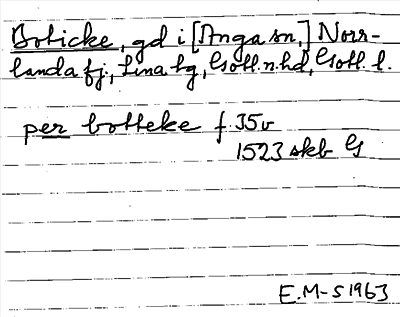 Boticke, gd i [Anga sn,] Norr-
landa fj., Lina tg, Gotl. n. hd, Gotl. l.
per botteke f. 35v
1523 skb G
E.M-S 1963